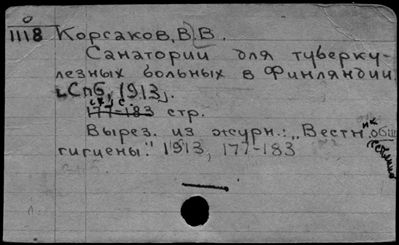 1118 Корсаков, В. В.
Санатории для туберку-
лезных больных в Финляндии.
[Спб, 1913].
177-183 стр.
Вырез. из журн.: „Вестн.
гигиены." 1913, 177-183